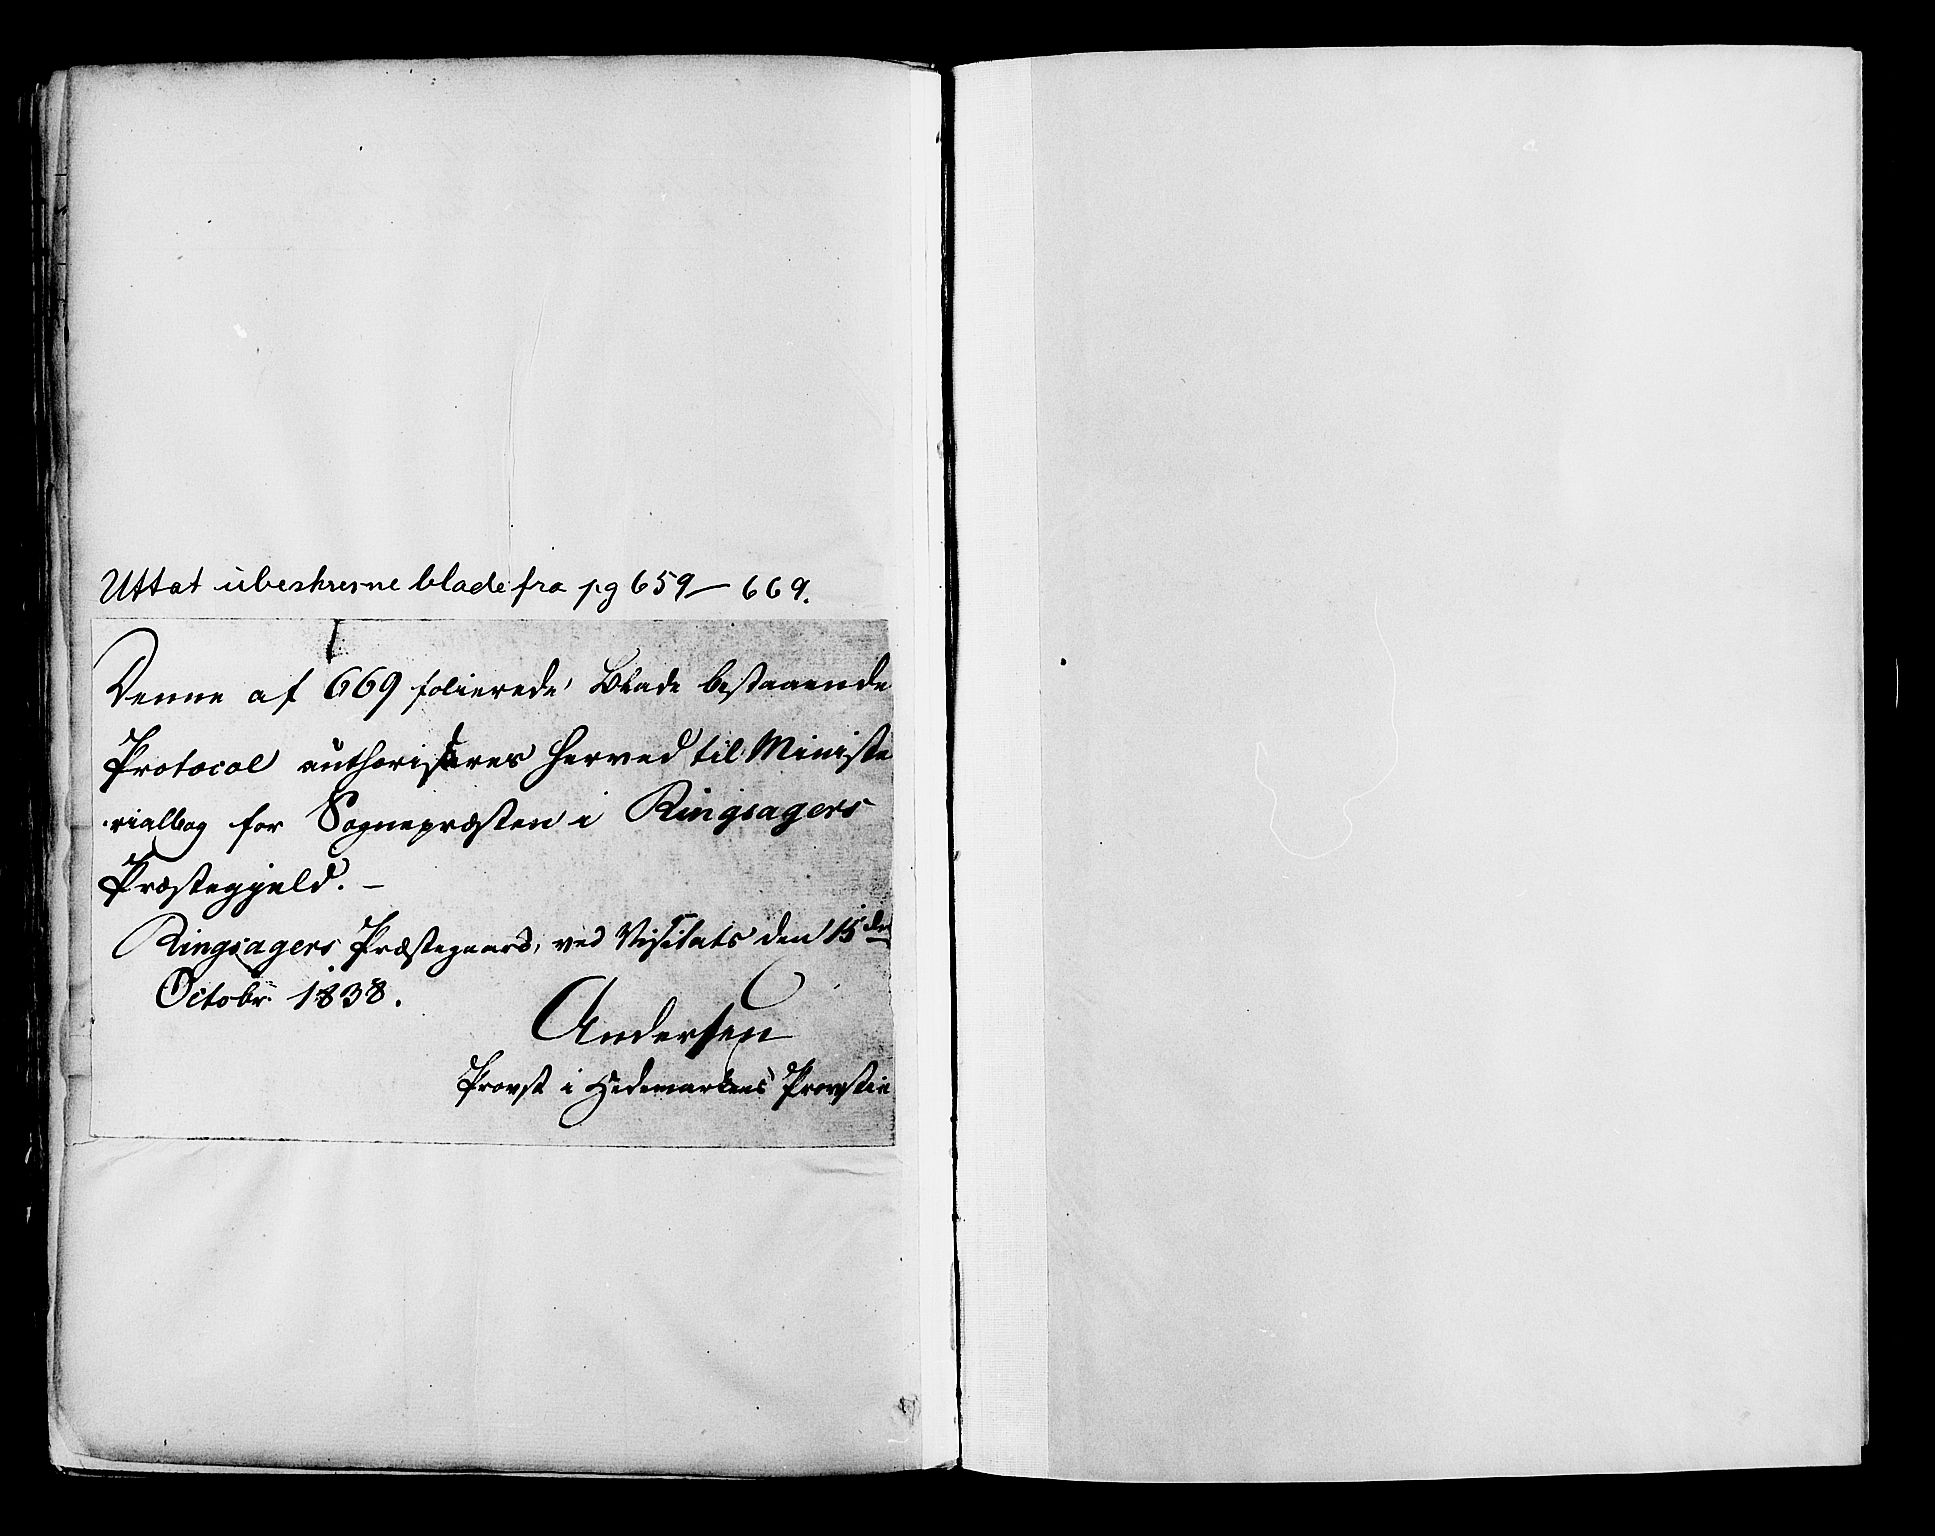 Uttat ubeskrevne blade fra pg 659 — 669.
Denne af 669 folierede Blade bestaaende
Protocol authoriseres herved til Ministe
rialbog for Sognepræsten i Ringsagers
Præstegjeld. —
Ringsagers Præstegaard, ved Visitats den 15de
Octobr 1838.
Andersen
Provst i Hedemarkens Provstie